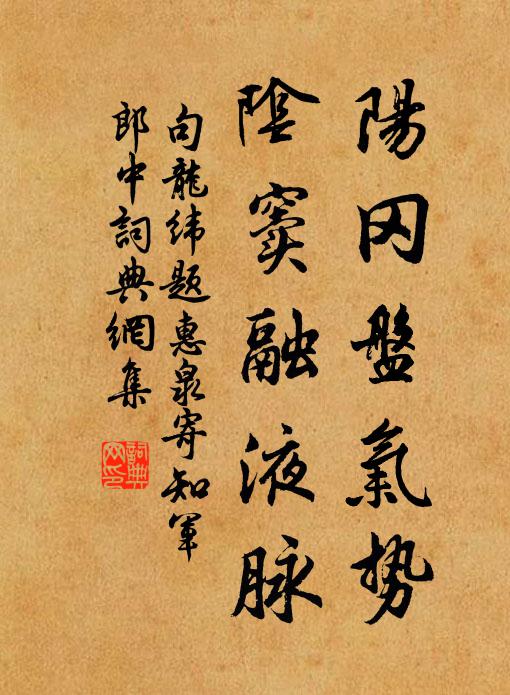 陽冈盤氣势
陰窦融液脉
句龍纬题惠泉寄知军
郎中詞典網集
詞典
网印